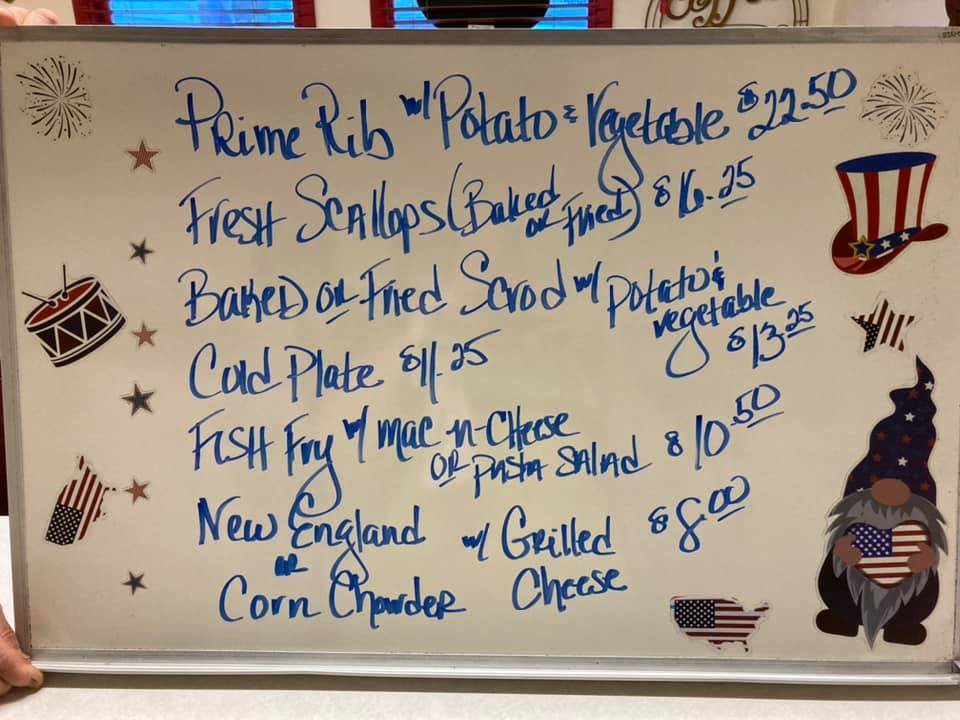 Prime Rib w/ Potato & Vegetable $22.50
Fresh Scallops (Baked or Fried) $16.25
Baked or Fried Scrod w/ Potato & vegetable $13.25
Cold Plate $11.25
Fish Fry w/ mac-n-cheese
or pasta salad $10.50
New England
or
Corn Chowder w/ Grilled Cheese $8.00